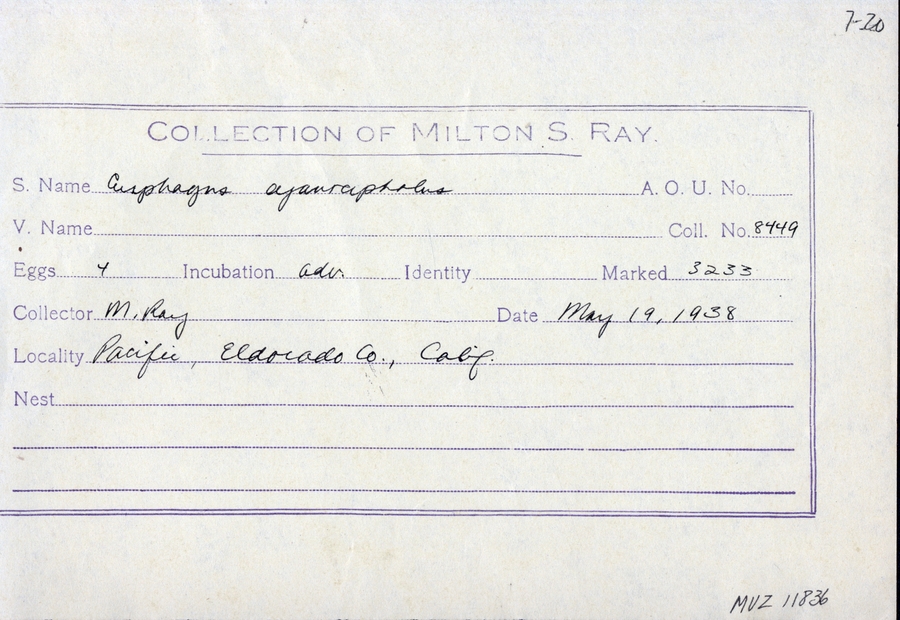 7-20
COLLECTION OF MILTON S. RAY.
S. Name Euphagus cyanocephalus A. O. U. No.
V. Name Coll. No. 8449
Eggs 4 Incubation adv. Identity Marked 3233
Collector M. Ray Date May 19, 1938
Locality Pacific, Eldorado Co., Calif.
Nest
MVZ 11836